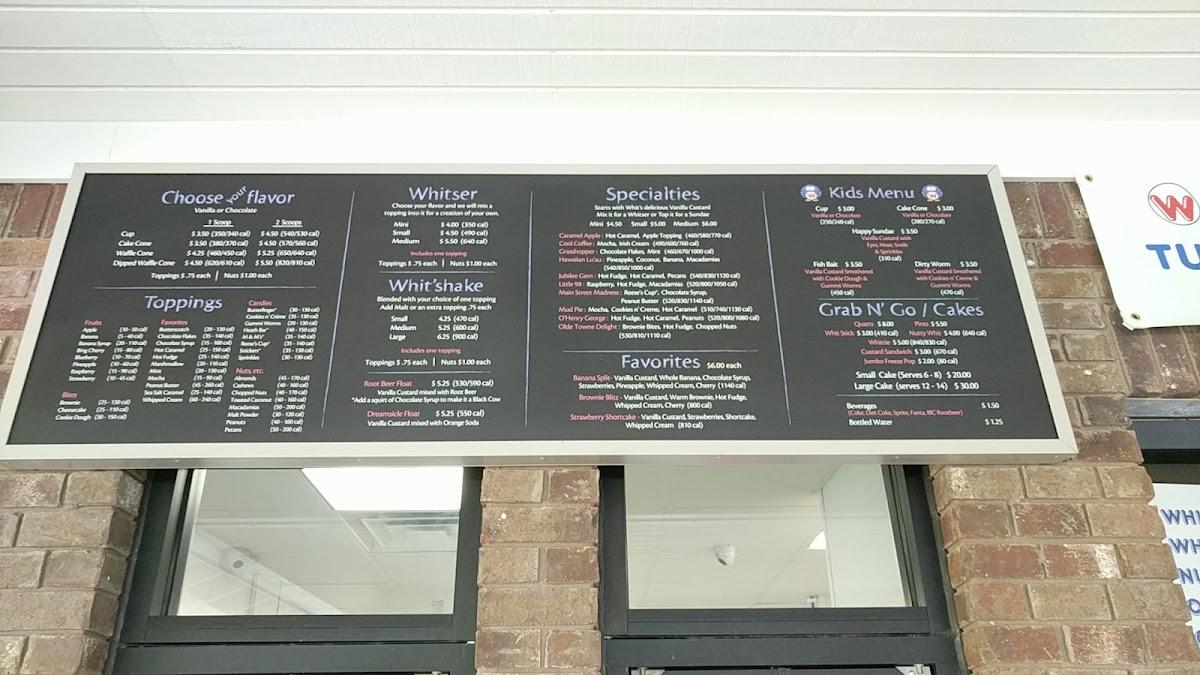 Choose your flavor
Vanilla or Chocolate
1 Scoop 2 Scoops
Cup $ 3.50 (350/340 cal) $ 4.50 (540/530 cal)
Cake Cone $ 3.50 (380/370 cal) $ 4.50 (570/560 cal)
Waffle Cone $ 4.25 (460/450 cal) $ 5.25 (650/640 cal)
Dipped Waffle Cone $ 4.50 (620/610 cal) $ 5.50 (820/810 cal)
Toppings $ .75 each | Nuts $1.00 each
Toppings
Fruits
Apple (30 - 50 cal)
Banana (15 - 40 cal)
Banana Syrup (20 - 110 cal)
Bing Cherry (15 - 80 cal)
Blueberry (10 - 70 cal)
Pineapple (10 - 60 cal)
Raspberry (15 - 90 cal)
Strawberry (10 - 45 cal)
Bites
Brownie (25 - 130 cal)
Cheesecake (25 - 110 cal)
Cookie Dough (30 - 150 cal)
Favorites
Butterscotch (20 - 130 cal)
Chocolate Flakes (25 - 140 cal)
Chocolate Syrup (15 - 100 cal)
Hot Caramel (25 - 150 cal)
Hot Fudge (25 - 140 cal)
Marshmallow (20 - 130 cal)
Mint (20 - 130 cal)
Mocha (15 - 90 cal)
Peanut Butter (45 - 260 cal)
Sea Salt Caramel (25 - 140 cal)
Whipped Cream (60 - 240 cal)
Candies
Butterfinger® (30 - 130 cal)
Cookies n' Crème (35 - 130 cal)
Gummi Worms (20 - 130 cal)
Heath Bar® (40 - 150 cal)
M & M's® (35 - 140 cal)
Reese's Cup® (35 - 140 cal)
Snickers® (35 - 130 cal)
Sprinkles (30 - 130 cal)
Nuts, etc.
Almonds (45 - 170 cal)
Cashews (40 - 160 cal)
Chopped Nuts (40 - 170 cal)
Toasted Coconut (40 - 160 cal)
Macadamias (50 - 200 cal)
Malt Powder (30 - 120 cal)
Peanuts (40 - 160 cal)
Pecans (50 - 200 cal)
Whitser
Choose your flavor and we will mix a
topping into it for a creation of your own.
Mini $ 4.00 (350 cal)
Small $ 4.50 (490 cal)
Medium $ 5.50 (640 cal)
Includes one topping
Toppings $ .75 each | Nuts $1.00 each
Whit'shake
Blended with your choice of one topping
Add Malt or an extra topping .75 each
Small 4.25 (470 cal)
Medium 5.25 (600 cal)
Large 6.25 (900 cal)
Includes one topping
Toppings $ .75 each | Nuts $1.00 each
Root Beer Float $ 5.25 (530/590 cal)
Vanilla Custard mixed with Root Beer
*Add a squirt of Chocolate Syrup to make it a Black Cow
Dreamsicle Float $ 5.25 (550 cal)
Vanilla Custard mixed with Orange Soda
Specialties
Starts with Whit's delicious Vanilla Custard
Mix it for a Whitser or Top it for a Sundae
Mini $4.50 Small $5.00 Medium $6.00
Caramel Apple : Hot Caramel, Apple Topping (460/580/770 cal)
Cool Coffee : Mocha, Irish Cream (490/600/760 cal)
Grasshopper : Chocolate Flakes, Mint (460/670/1000 cal)
Hawaiian Lu'au : Pineapple, Coconut, Banana, Macadamias
(540/850/1000 cal)
Jubilee Gem : Hot Fudge, Hot Caramel, Pecans (540/830/1120 cal)
Little 98 : Raspberry, Hot Fudge, Macadamias (520/800/1050 cal)
Main Street Madness : Reese's Cup®, Chocolate Syrup,
Peanut Butter (520/830/1140 cal)
Mud Pie : Mocha, Cookies n' Creme, Hot Caramel (510/740/1130 cal)
O'Henry George : Hot Fudge, Hot Caramel, Peanuts (520/800/1080 cal)
Olde Towne Delight : Brownie Bites, Hot Fudge, Chopped Nuts
(530/810/1110 cal)
Favorites $6.00 each
Banana Split- Vanilla Custard, Whole Banana, Chocolate Syrup,
Strawberries, Pineapple, Whipped Cream, Cherry (1140 cal)
Brownie Blitz - Vanilla Custard, Warm Brownie, Hot Fudge,
Whipped Cream, Cherry (800 cal)
Strawberry Shortcake - Vanilla Custard, Strawberries, Shortcake,
Whipped Cream (810 cal)
Kids Menu
Cup $ 3.00 Cake Cone $ 3.00
Vanilla or Chocolate Vanilla or Chocolate
(250/240 cal) (280/270 cal)
Happy Sundae $ 3.50
Vanilla Custard with
Eyes, Nose, Smile
& Sprinkles
(310 cal)
Fish Bait $ 3.50 Dirty Worm $ 3.50
Vanilla Custard Smothered Vanilla Custard Smothered
with Cookie Dough & with Cookies n' Creme &
Gummi Worms Gummi Worms
(450 cal) (470 cal)
Grab N' Go / Cakes
Quarts $ 8.00 Pints $ 5.50
Whit Stick $ 3.00 (410 cal) Nutty Whit $ 4.00 (640 cal)
Whittie $ 5.00 (840/830 cal)
Custard Sandwich $ 3.00 (670 cal)
Jumbo Freeze Pop $ 2.00 (80 cal)
Small Cake (Serves 6 - 8) $ 20.00
Large Cake (serves 12 - 14) $ 30.00
Beverages $ 1.50
(Coke, Diet Coke, Sprite, Fanta, IBC Rootbeer)
Bottled Water $ 1.25
W
TU
WHI
WH
NU